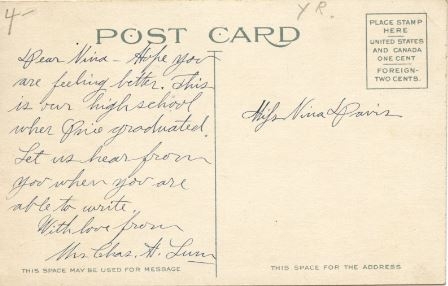 4-
YR.
POST CARD
PLACE STAMP
HERE
UNITED STATES
AND CANADA
ONE CENT
FOREIGN-
TWO CENTS.
Dear Nina - Hope you
are feeling better. This
is our high school
wher graduated.
Let us hear from
you when you are
able to write
With love from
Mrs Chas. H.
Miss Nina Davis
THIS SPACE MAY BE USED FOR MESSAGE
THIS SPACE FOR THE ADDRESS